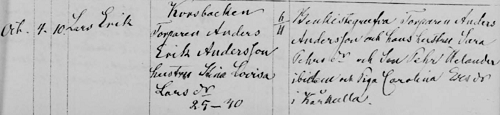 Korsbacken
Octb. 4. 10. Lars Erik
Torparen Anders
Erik Andersson
hustru Stina Lovisa
Lars dr
25 – 40
6/11
Torparen Anders
Andersson och hans hustru Sara
dr och Son Pehr Helander
ibidem och Piga Carolina
i